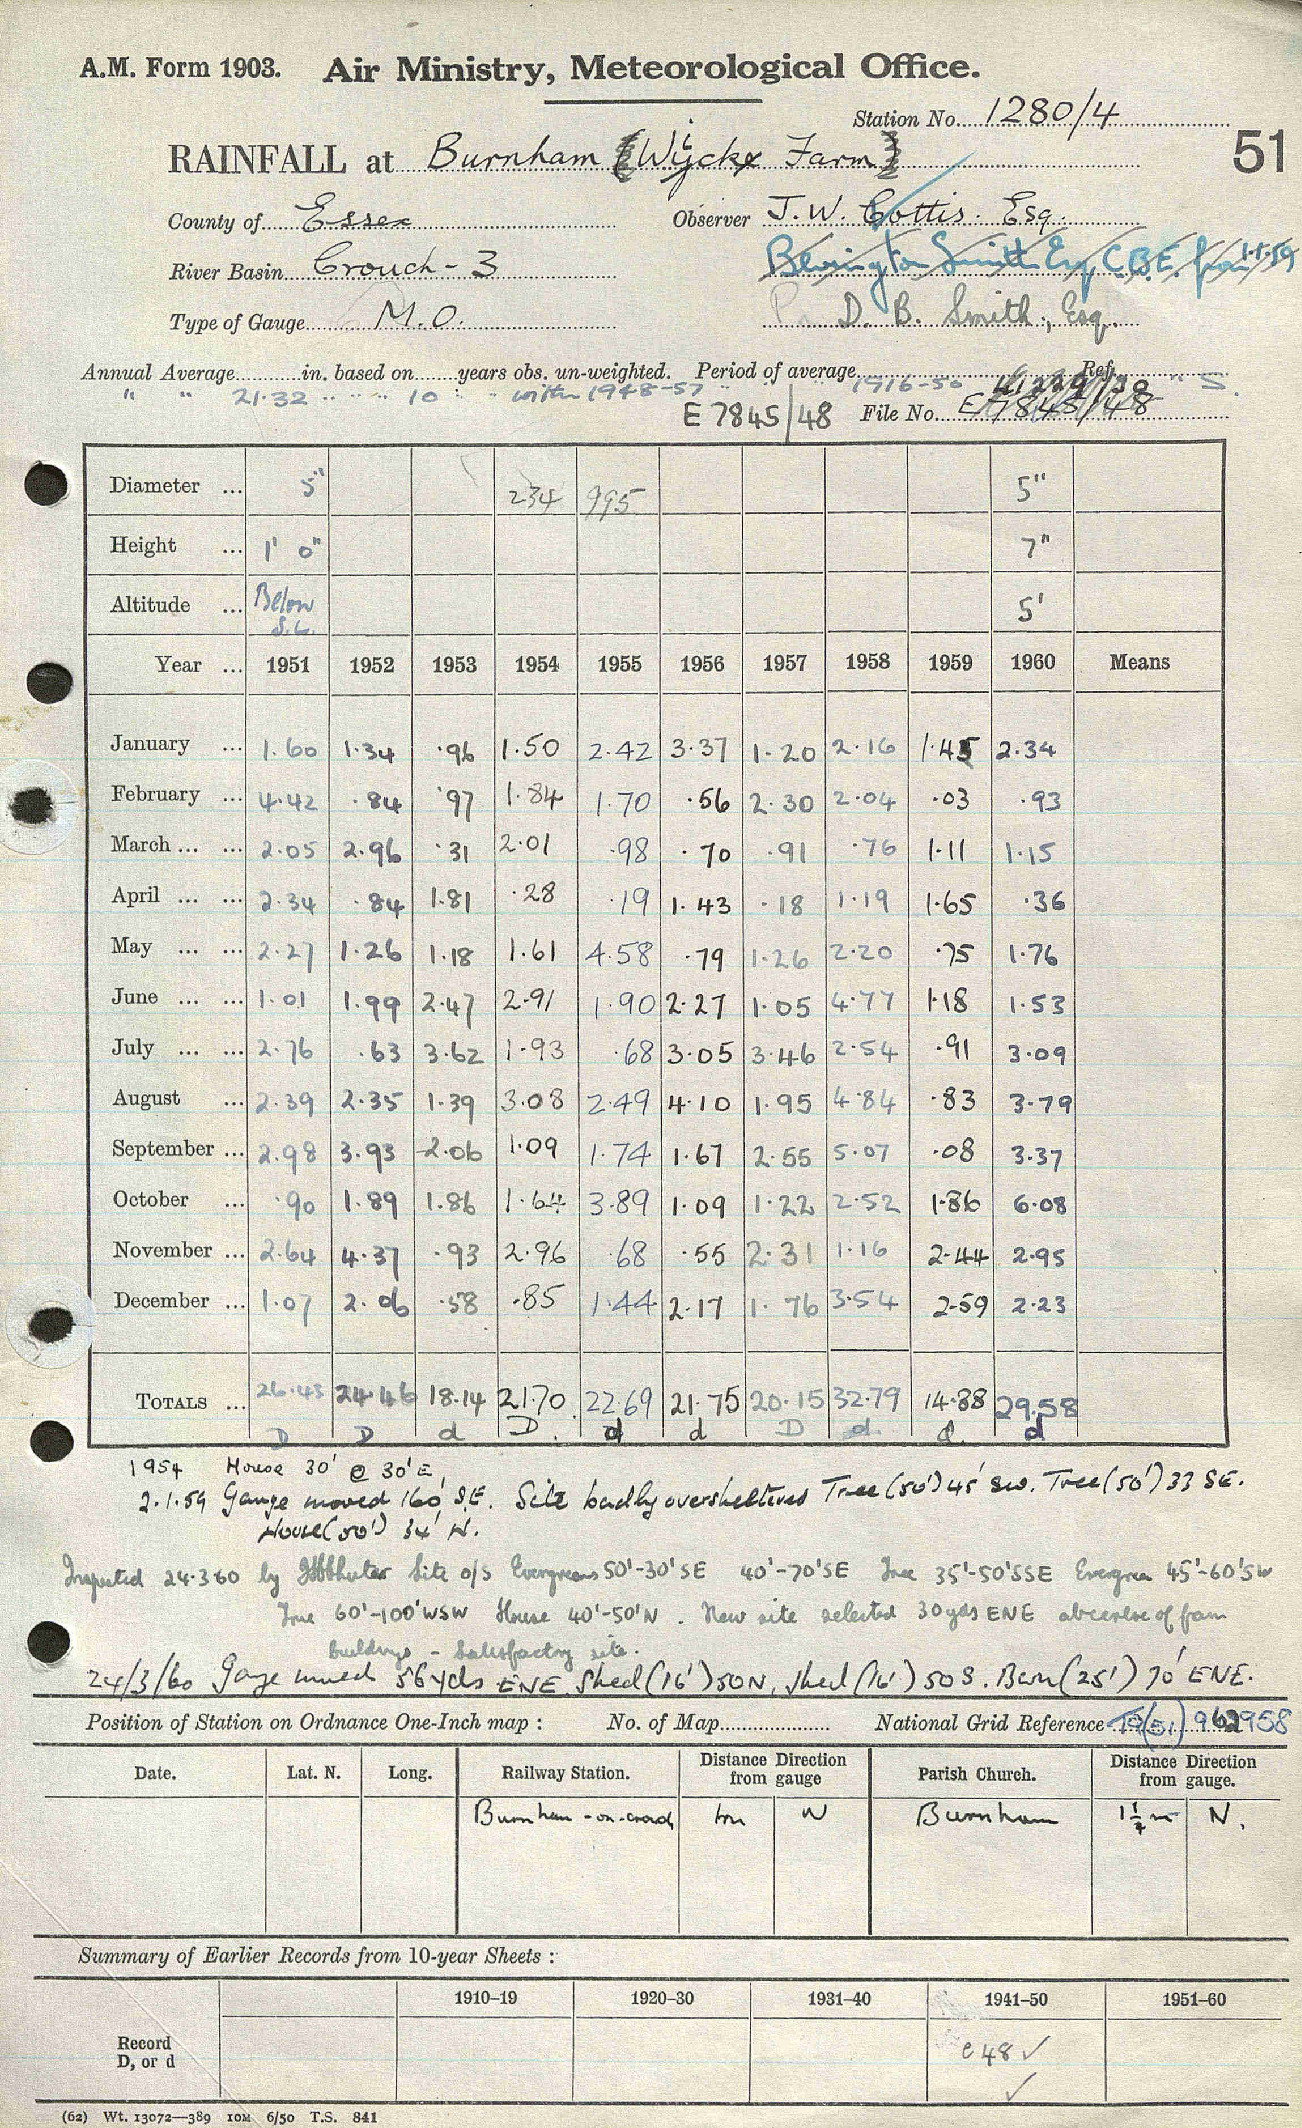 A.M. Form 1903. Air Ministry, Meteorological Office.
Station No. 1280/4
RAINFALL at Burnham (Wick Farm) 51
County of Essex Observer J.W. Cottis. Esq.
River Basin Crouch - 3 Bevington Smith Esq C.B.E. from 1.1.59
Type of Gauge M.O. D. B. Smith, Esq.
Annual Average in. based on years obs. un-weighted. Period of average Ref.
" " 21.32 " " " 10 " " with 1948-57 " 1916-50 " S
E 7845/48 File No. E 7845/48
Diameter ... 5" 234 995 5"
Height ... 1' 0" 7"
Altitude ... Below S.L. 5'
Year ... 1951 1952 1953 1954 1955 1956 1957 1958 1959 1960 Means
January ... 1.60 1.34 .96 1.50 2.42 3.37 1.20 2.16 1.45 2.34
February ... 4.42 .84 .97 1.84 1.70 .56 2.30 2.04 .03 .93
March ... ... 2.05 2.96 .31 2.01 .98 .70 .91 .76 1.11 1.15
April ... ... 2.34 .84 1.81 .28 .19 1.43 .18 1.19 1.65 .36
May ... ... 2.27 1.26 1.18 1.61 4.58 .79 1.26 2.20 .75 1.76
June ... ... 1.01 1.99 2.47 2.91 1.90 2.27 1.05 4.77 1.18 1.53
July ... ... 2.76 .63 3.62 1.93 .68 3.05 3.46 2.54 .91 3.09
August ... 2.39 2.35 1.39 3.08 2.49 4.10 1.95 4.84 .83 3.79
September ... 2.98 3.93 2.06 1.09 1.74 1.67 2.55 5.07 .08 3.37
October ... .90 1.89 1.86 1.64 3.89 1.09 1.22 2.52 1.86 6.08
November ... 2.64 4.37 .93 2.96 .68 .55 2.31 1.16 2.44 2.95
December ... 1.07 2.06 .58 .85 1.44 2.17 1.76 3.54 2.59 2.23
TOTALS ... 26.43 24.46 18.14 21.70 22.69 21.75 20.15 32.79 14.88 29.58
D D d D. d d D d d d
1954 House 30' @ 30' E.
2.1.59 Gauge moved 160' S.E. Site badly oversheltered Tree (50') 45' SW. Tree (50') 33 SE.
House (50') 34' N.
Inspected 24.3.60 by Site o/s Evergreens 50'-30' SE 40'-70' SE Tree 35'-50' SSE Evergreen 45'-60' SW
Tree 60'-100' WSW House 40'-50' N. New site selected 30 yds ENE of farm
buildings - Satisfactory site.
24/3/60 Gauge moved 56 yds ENE. Shed (16') 50 N, Shed (16') 50 S. Barn (25') 70' ENE.
Position of Station on Ordnance One-Inch map : No. of Map National Grid Reference (51) 962958
Date. Lat. N. Long. Railway Station. Distance Direction from gauge Parish Church. Distance Direction from gauge.
Burnham-on-Crouch 1m N Burnham 1¼ m N.
Summary of Earlier Records from 10-year Sheets :
1910-19 1920-30 1931-40 1941-50 1951-60
Record D, or d c 48 ✓
✓
(62) Wt. 13072—389 10M 6/50 T.S. 841